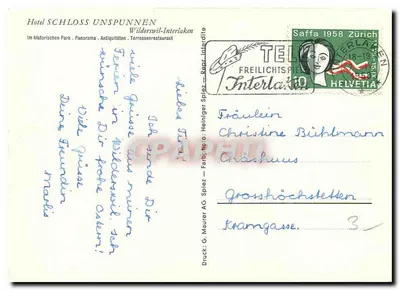 Hotel SCHLOSS UNSPUNNEN
Wilderswil-Interlaken
Im historischen Park · Panorama · Antiquitäten · Terrassenrestaurant
liebes Tine
Ich sende Dir
viele Grüsse aus meinen
Ferien in Wilderswil. Ich
wünsche Dir frohe Ostern!
Viele Grüsse
Deine Freundin
Marlis
Druck: G. Maurer AG Spiez - Farbfoto: Heiniger Spiez - Repr. interdite
TELL
FREILICHTSPIELE
Interlaken
INTERLAKEN
Saffa 1958 Zürich
10
HELVETIA
Fräulein
Christine Bühlmann
Chäshuus
Grosshöchstetten
Kramgasse.
3-